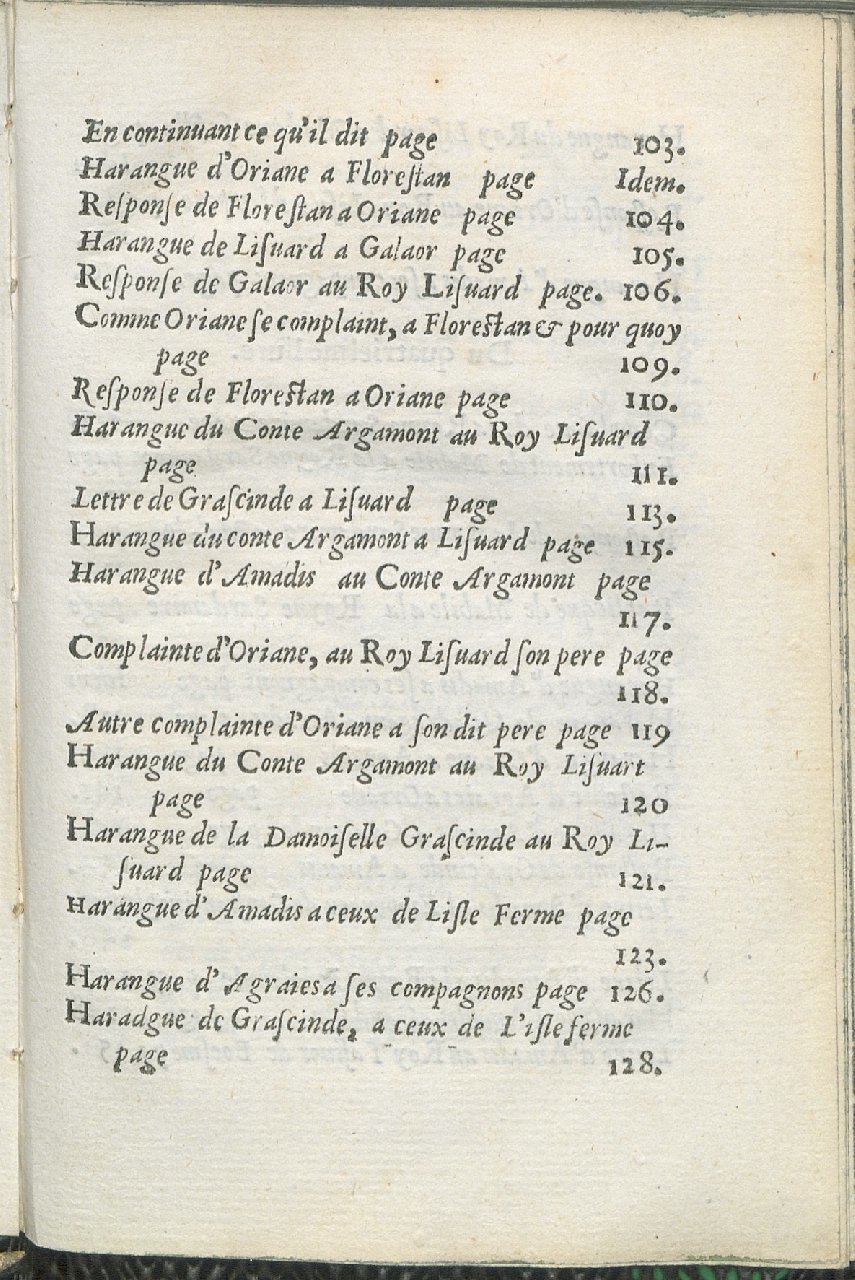 En continuant ce qu'il dit page 103.
Harangue d'Oriane a Floreſtan page Idem.
Reſponſe de Floreſtan a Oriane page 104.
Harangue de Liſuard a Galaor page 105.
Reſponſe de Galaor au Roy Liſuard page. 106.
Comme Oriane ſe complaint, a Floreſtan & pour quoy
page 109.
Reſponſe de Floreſtan a Oriane page 110.
Harangue du Conte Argamont au Roy Liſuard
page 111.
Lettre de Graſcinde a Liſuard page 113.
Harangue du conte Argamont a Liſuard page 115.
Harangue d'Amadis au Conte Argamont page
117.
Complainte d'Oriane, au Roy Liſuard ſon pere page
118.
Autre complainte d'Oriane a ſon dit pere page 119
Harangue du Conte Argamont au Roy Liſuart
page 120
Harangue de la Damoiſelle Graſcinde au Roy Li-
ſuard page 121.
Harangue d'Amadis a ceux de Liſle Ferme page
123.
Harangue d'Agraies a ſes compagnons page 126.
Haradgue de Graſcinde, a ceux de L'iſle ferme
page 128.